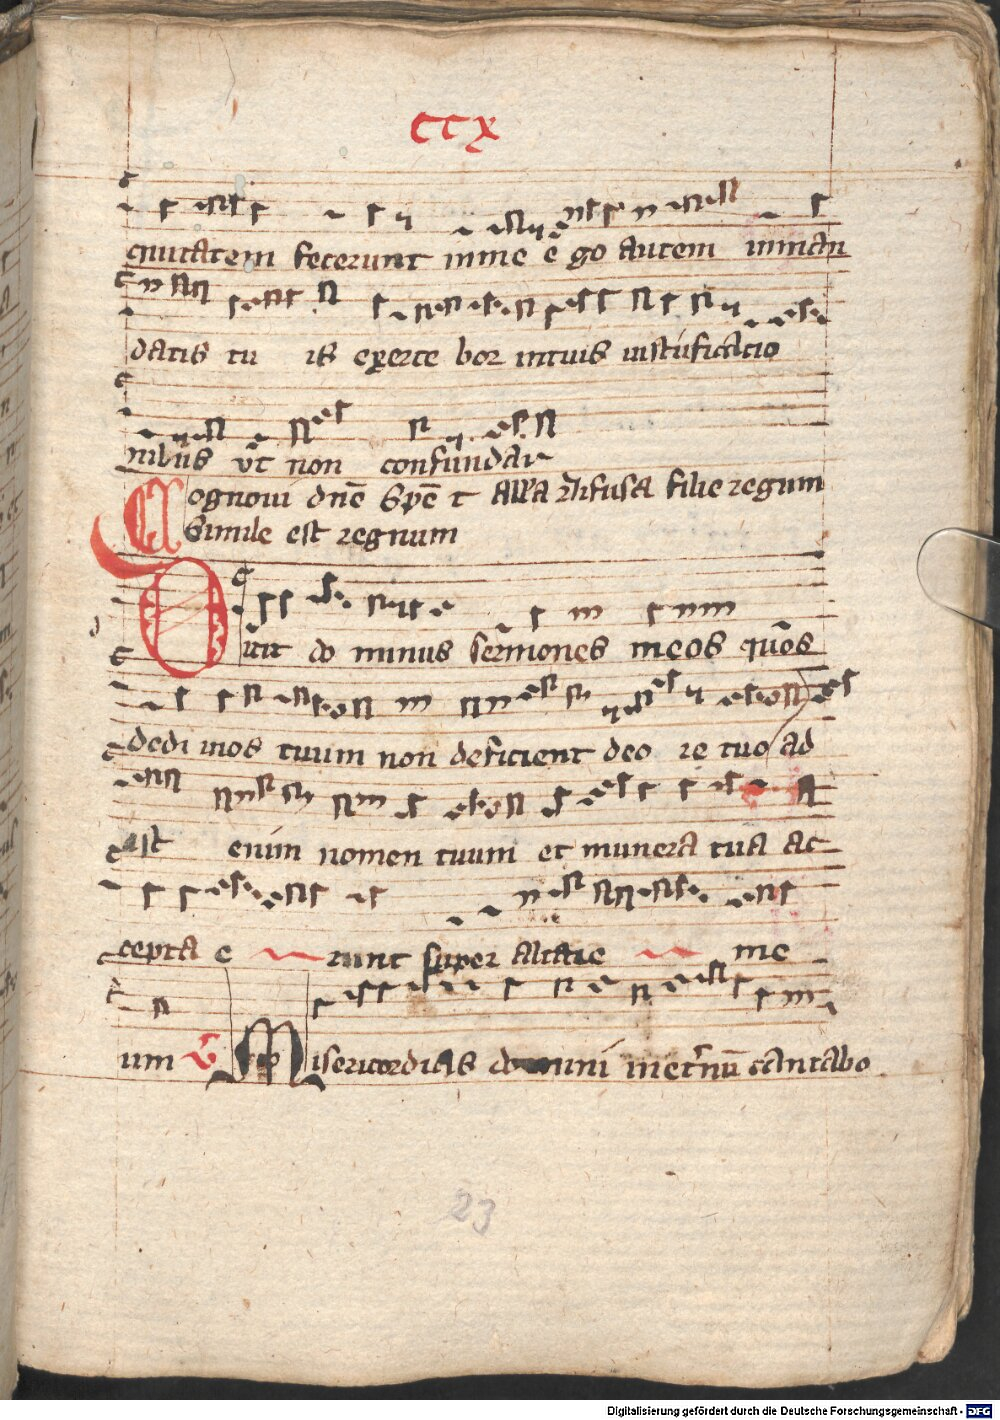 ccx
quitatem fecerunt in me e go autem in man
datis tu is exerce bor in tuis iustificacio
nibus vt non confundar
Cognoui dne Spe t alla Diffusa filie regum
Simile est regnum
Dixit do minus sermones meos quos
dedi in os tuum non deficient deo re tuo ad
est enim nomen tuum et munera tua ac
cepta e runt super altare me
um V Misericordias domini in etnū cantabo
23
Digitalisierung gefördert durch die Deutsche Forschungsgemeinschaft - DFG